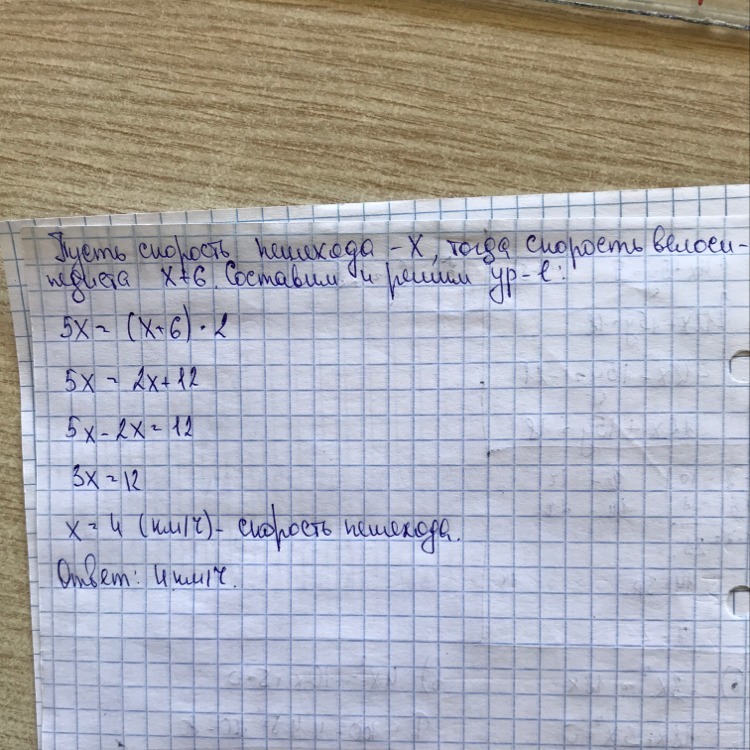 Пусть скорость пешехода - х, тогда скорость велоси-
педиста х+6. Составим и решим ур-е:
5х = (х+6) · 2
5х = 2х+12
5х - 2х = 12
3х = 12
х = 4 (км/ч) - скорость пешехода.
Ответ: 4 км/ч.